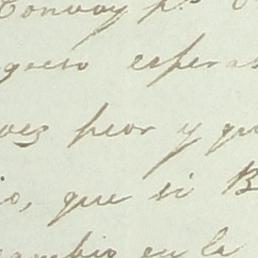 Convoy p.ª
greso esperas
vez peor y qu
io, que si B
cambio en la